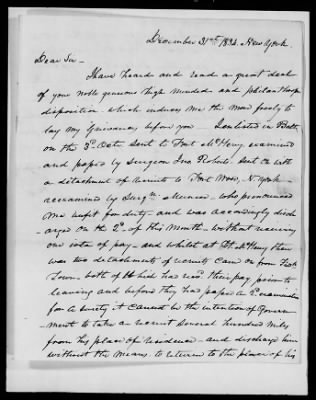 December 31st 1834. New York.
Dear Sir –
Have heard and read a great deal
of your noble generous high minded and philanthropic
disposition – which induces me the more freely to
lay my grievances before you – I enlisted in Balt.
on the 3d Oct. sent to Fort McHenry examined
and passed by Surgeon Sent on with
a detachment of recruits to Fort Wood, N. York –
reexamined by Surgn. – who pronounced
me unfit for duty – and was accordingly disch-
arged on the 2d of this Month – without receiving
one iota of pay – and whilst at Ft. McHenry there
was two detachments of recruits came on from
Town – both of had recd. their pay previous to
leaving and before they had passed a 2d examination
for a surety it cannot be the intention of Govern-
ment to take a recruit several hundred miles
from his place of residence – and discharge him
without the means to return to the place of his